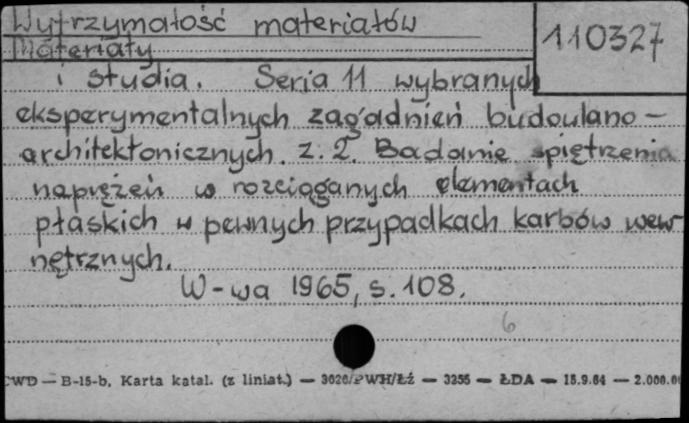 Wytrzymałość materiałów
110327
Materiały
i studia. Seria 11 wybranych
eksperymentalnych zagadnień budowlano-
architektonicznych. z. 2. Badanie spiętrzenia
naprężeń w rozciąganych elementach
płaskich w pewnych przypadkach karbów wew-
nętrznych.
W-wa 1965, s. 108.
6
CWD — B-15-b, Karta katal. (z liniat.) — 3020/PWH/Łź — 3255 — ŁDA — 15.9.64 — 2.000.0